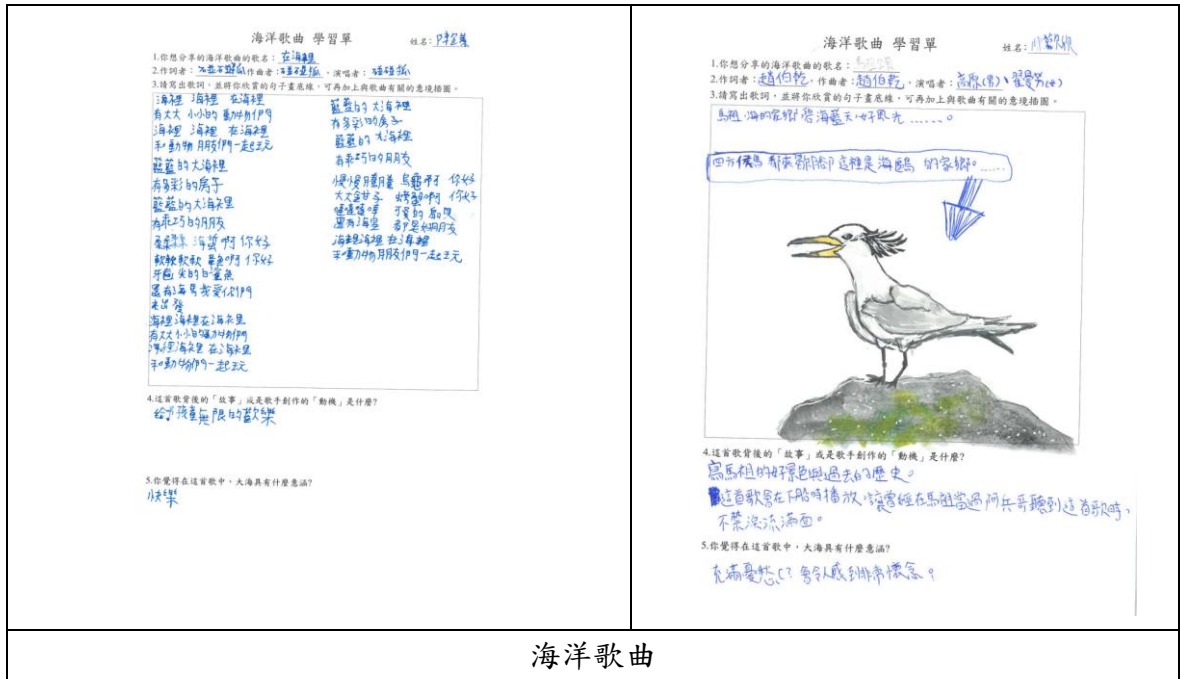 海洋歌曲 學習單 姓名:
1.你想分享的海洋歌曲的歌名:在海裡
2.作詞者:碰碰狐 作曲者:碰碰狐,演唱者:碰碰狐
3.請寫出歌詞,並將你欣賞的句子畫底線,可再加上與歌曲有關的意境插圖。
海裡 海裡 在海裡
有大大 小小的 動物們
海裡 海裡 在海裡
和動物 朋友們一起玩
藍藍的大海裡
有多彩的房子
藍藍的大海裡
有乖巧的朋友
海蜇啊 你好
軟軟軟軟 章魚啊 你好
牙齒尖的白鯊魚
還有海馬 我愛你們
出發
海裡海裡在海裡
有大大小小的動物們
海裡海裡 在海裡
和動物們一起玩
藍藍的大海裡
有多彩的房子
藍藍的大海裡
有乖巧的朋友
慢慢 烏龜啊 你好
大大鉗子 螃蟹啊 你好
還有海星 都是好朋友
海裡海裡在海裡
和動物朋友們一起玩
4.這首歌背後的「故事」或是歌手創作的「動機」是什麼?
給孩童無限的歡樂
5.你覺得在這首歌中,大海具有什麼意涵?
快樂
海洋歌曲 學習單 姓名:
1.你想分享的海洋歌曲的歌名:馬祖頌
2.作詞者:趙伯乾,作曲者:趙伯乾,演唱者:(男)、(女)
3.請寫出歌詞,並將你欣賞的句子畫底線,可再加上與歌曲有關的意境插圖。
馬祖,海的家鄉,碧海藍天好風光……。
四方候鳥 都來歇腳 這裡是海鷗鳥 的家鄉。……
4.這首歌背後的「故事」或是歌手創作的「動機」是什麼?
寫馬祖的好景色與過去的歷史。
這首歌會在下船時播放,讓曾經在馬祖當過阿兵哥聽到這首歌時,
不禁淚流滿面。
5.你覺得在這首歌中,大海具有什麼意涵?
充滿憂愁 會令人感到非常懷念。
海洋歌曲